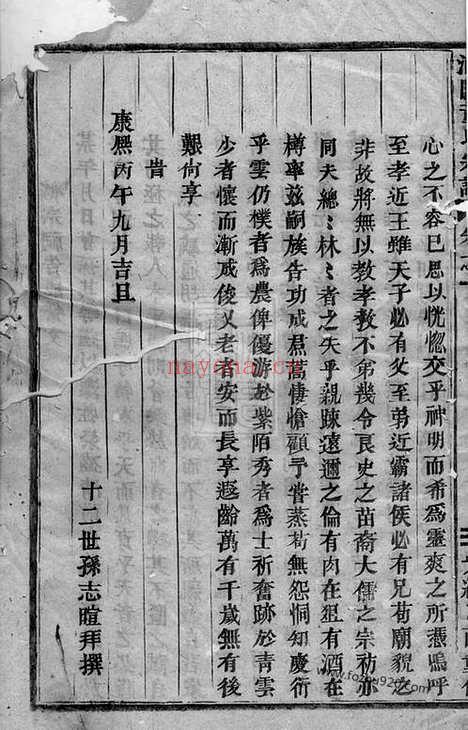 心之不容已思以恍惚交乎神明而希爲靈爽之所憑嗚呼
至孝近王雖天子必有父至弟近霸諸侯必有兄苟廟貌之
非故將無以教孝教不弟幾令良史之苗裔大儒之宗祊亦
同夫總〻林〻者之失乎親踈遠邇之倫有肉在俎有酒在
樽率玆嗣族告功成焄蒿悽愴顧予甞蒸苟無怨恫知慶衍
乎雲仍樸者爲農俾優游於紫陌秀者爲士祈奮跡於青雲
少者懷而漸成俊乂老者安而長享遐齡萬有千歲無有後
艱尚享
旹
康熙丙午九月吉旦
十二世孫志暄拜撰
nayfma.cn
www.fozupu920.com